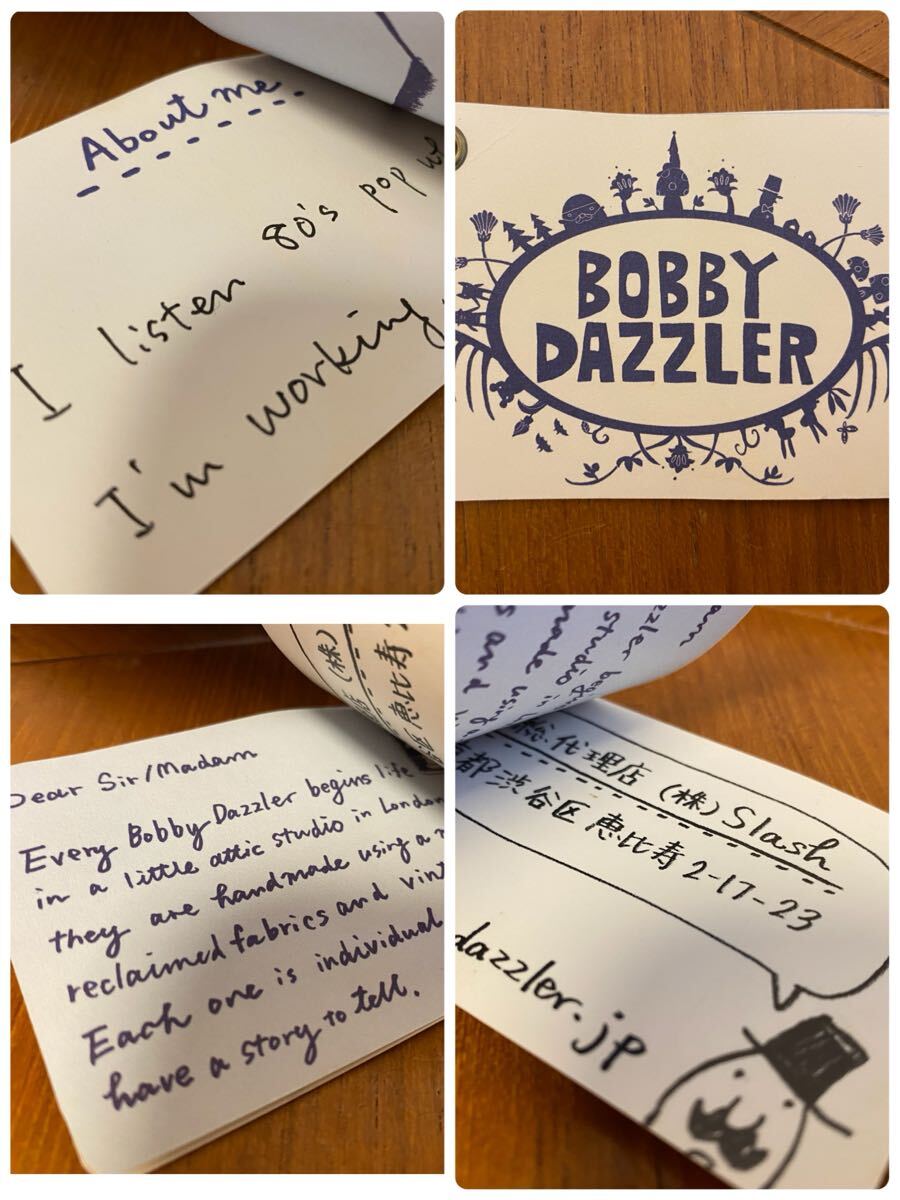 About me
I listen 80's pop
I'm working
BOBBY
DAZZLER
(株)
恵比寿
Dear Sir/Madam
Every Bobby Dazzler begins life
in a little attic studio in London
they are handmade using a
reclaimed fabrics and
Each one is individual
have a story to tell.
studio in
made using
s and
総代理店 (株) Slash
都渋谷区恵比寿 2-17-23
dazzler.jp